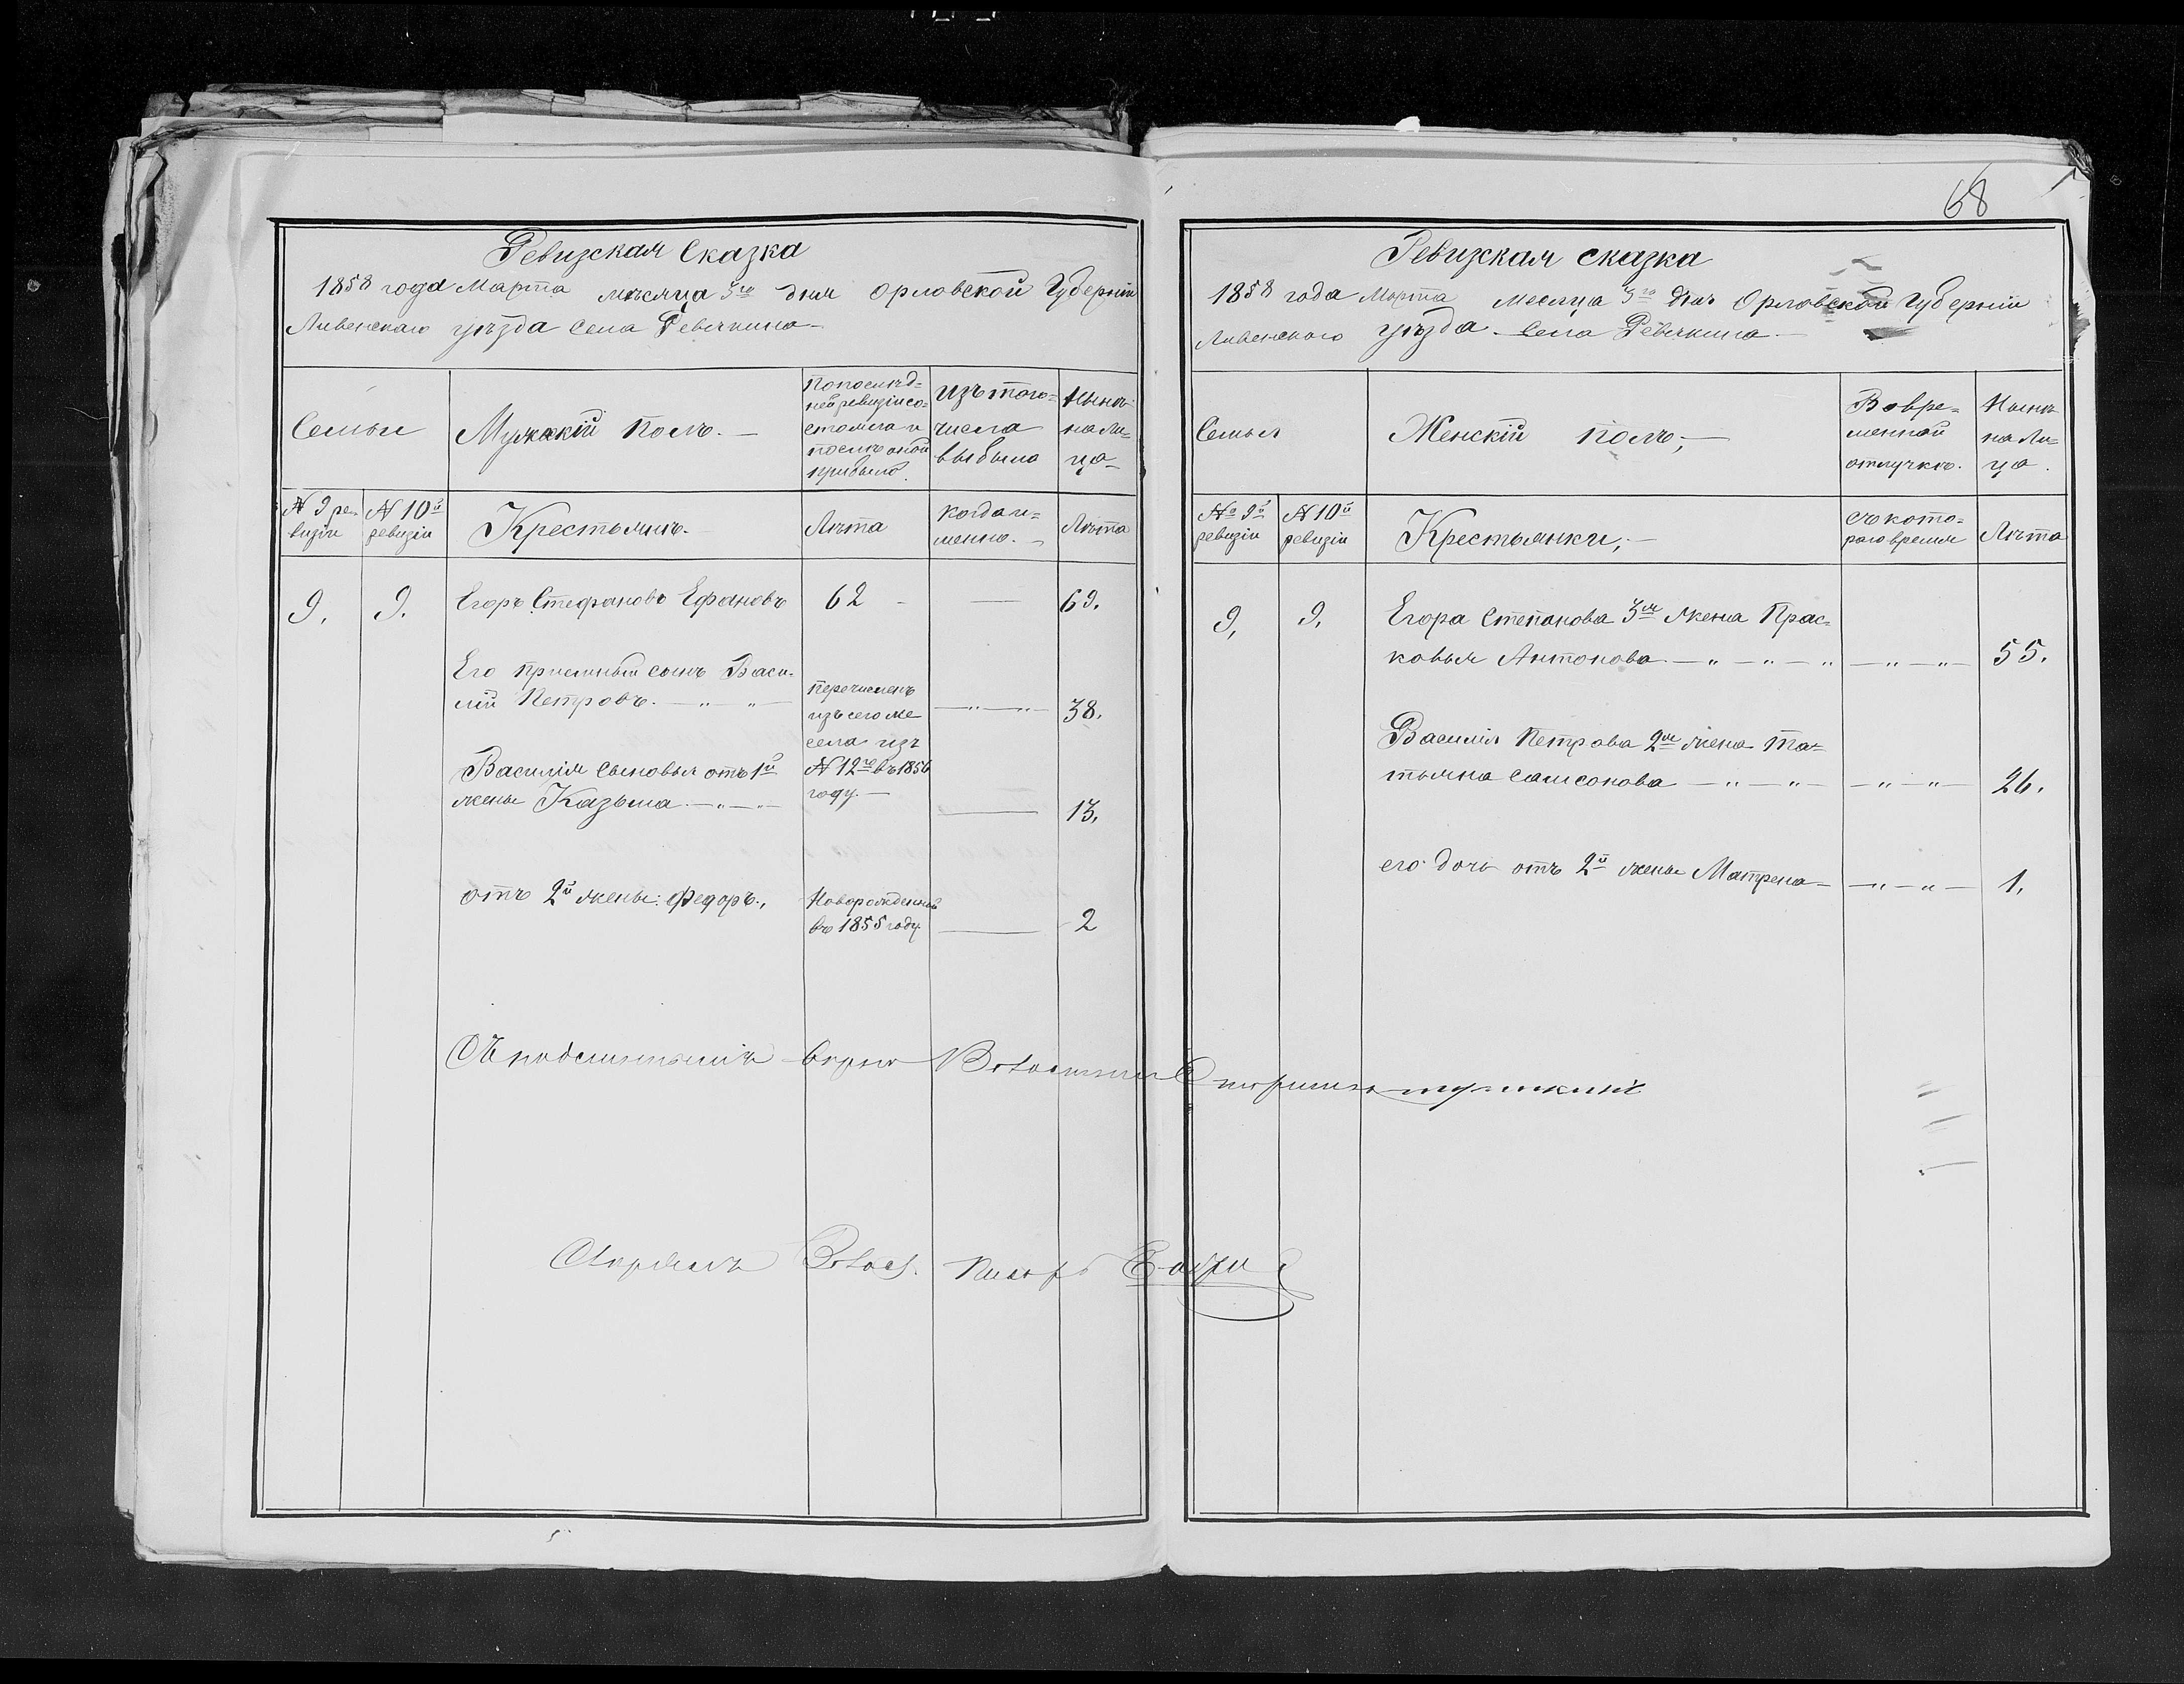 68
Ревизская Сказка
1858 года Марта мѣсяца 3го дня Орловской Губерніи
Ливенскаго уѣзда села Ревякина
Семьи
Мужскій полъ.
По послѣд-
ней ревизіи со-
стояло и
послѣ оной
прибыло.
Изъ того
числа
выбыло
Нынѣ
на ли-
цо
№ 9 ре-
визіи
№ 10й
ревизіи
Крестьянъ.
Лѣта
когда и-
менно.
Лѣта
9. 9. Егоръ Стефановъ Ефановъ 62 — 69.
Его приемный сынъ Васи-
лій Петровъ. — 38.
перечисленъ
изъ сего же
села изъ
№ 12го въ 1856
году.
Василія сыновья отъ 1й
жены Казьма — 13.
отъ 2й жены: Федоръ., Новорожденный
въ 1855 году — 2
Ревизкая сказка
1858 года Марта месяца 3го дня Орловской Губерніи
Ливенскаго уѣзда села Ревякина
Семья
Женскій полъ;
Во вре-
менной
отлучкѣ.
Нынѣ
на ли-
цо.
№ 9й
ревизіи
№ 10й
ревизіи
Крестьянки;
съ кото-
раго время
Лѣта
9, 9. Егора Степанова 3я жена Прас-
ковья Антонова — " — " — " — " — " — 55.
Василія Петрова 2я жена Та-
тьяна Самсонова — " — " — — " — " — 26.
его дочь отъ 2й жены Матрена — — " — " — 1.